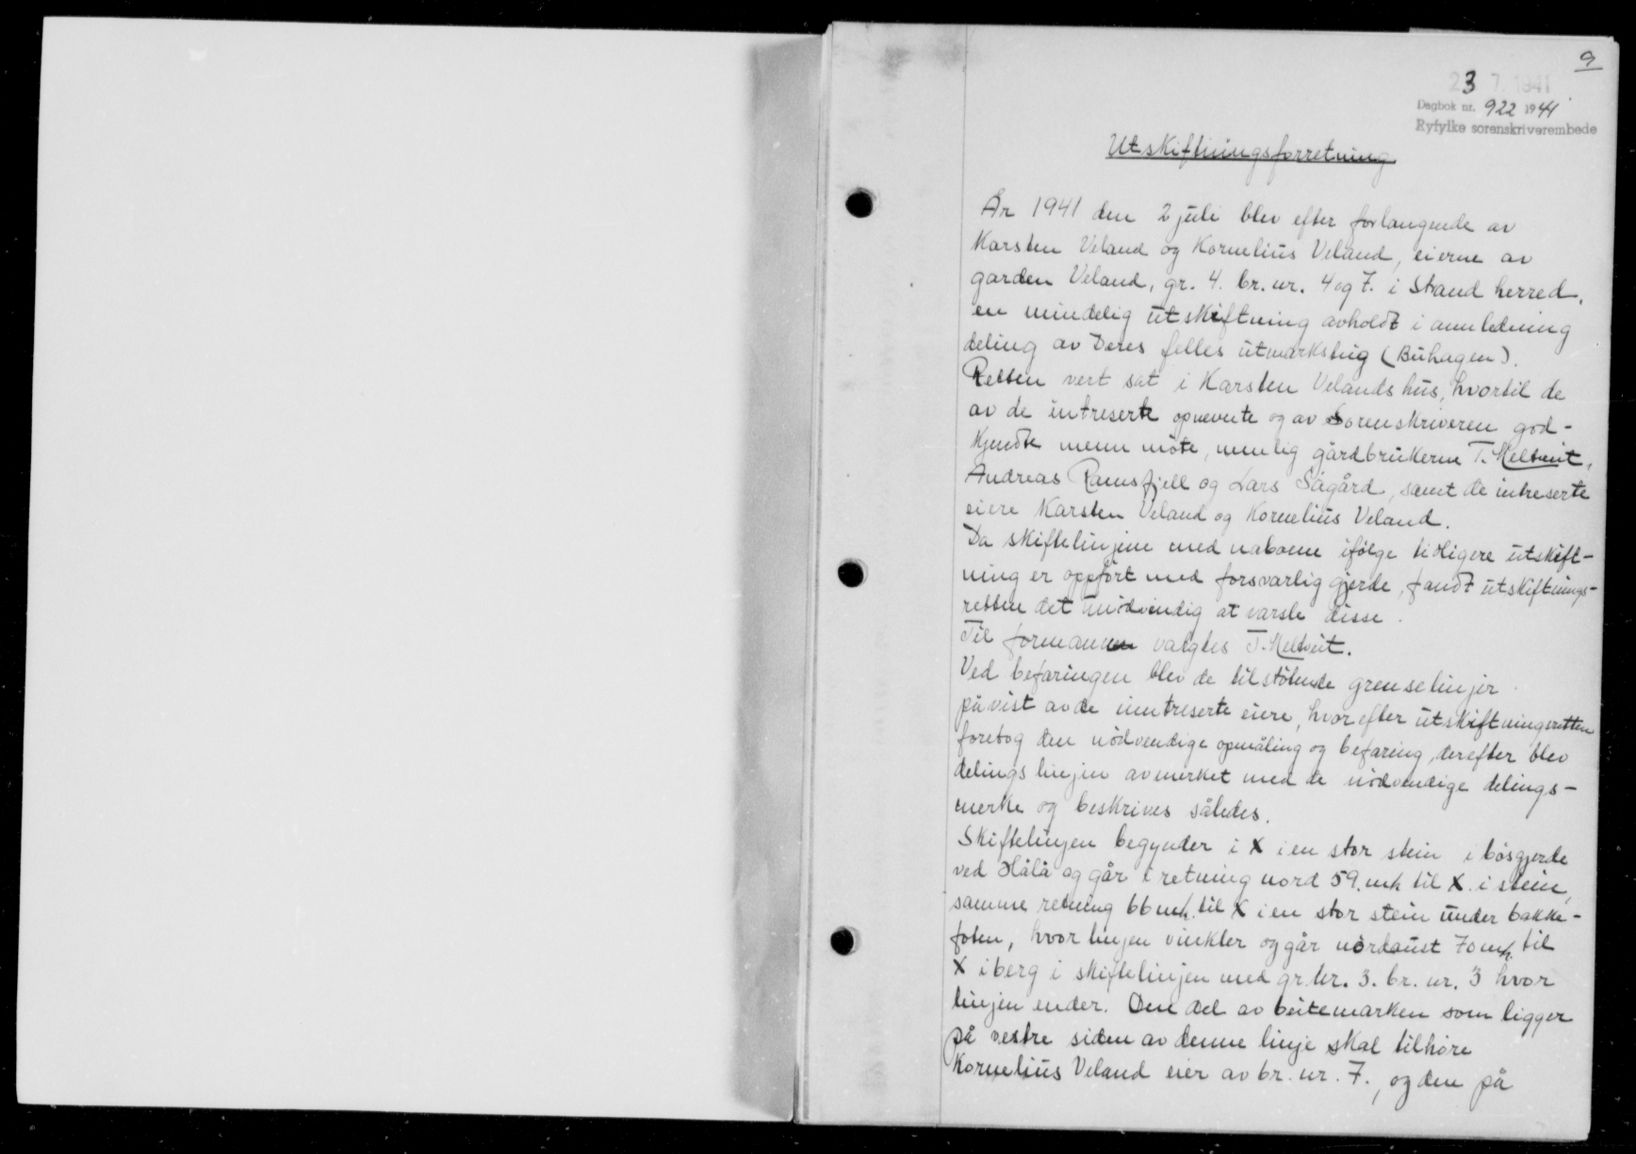 9
23 7. 1941
Dagbok nr. 922 1941
Ryfylke sorenskriverembede
Utskiftningsforretning
År 1941 den 2 juli blev efter forlangende av
Karsten Veland og Kornelius Veland, eierne av
garden Veland, gr. 4. br. nr. 4 og 7. i Strand herred,
en mindelig utskiftning avholdt i annledning
deling av Deres felles utmarksteig (Buhagen).
Retten vert sat i Karsten Velands hus, hvortil de
av de intreserte opnevnte og av Sorenskriveren god-
kjendte menn møte, nemlig gårdbrukerne T. Meltveit,
Andreas Ramsfjell og Lars Sågård, samt de intreserte
eiere Karsten Veland og Kornelius Veland.
Da skiftelinjene med naboene ifølge tidligere utskift-
ning er oppført med forsvarlig gjerde, fandt utskiftnings-
retten det unødvendig at varsle disse.
Til formann valgtes T. Meltveit.
Ved befaringen blev de tilstøtende grenselinjer
påvist av de inntreserte eiere, hvorefter utskiftningsretten
foretog den nødvendige opmåling og befaring, derefter blev
delingslinjen avmerket med de nødvendige delings-
merke og beskrives således.
Skiftelinjen begynder i X i en stor stein i bøsgjerde
ved Hålå og går i retning nord 59. mtr til X. i stein,
samme retning 66 mtr. til X i en stor stein under bakke-
foten, hvor linjen vinkler og går nordaust 70 mtr. til
X i berg i skiftelinjen med gr. nr. 3. br. nr. 3 hvor
linjen ender. Den del av beitemarken som ligger
på vestre siden av denne linje skal tilhøre
Kornelius Veland eier av br. nr. 7., og den på